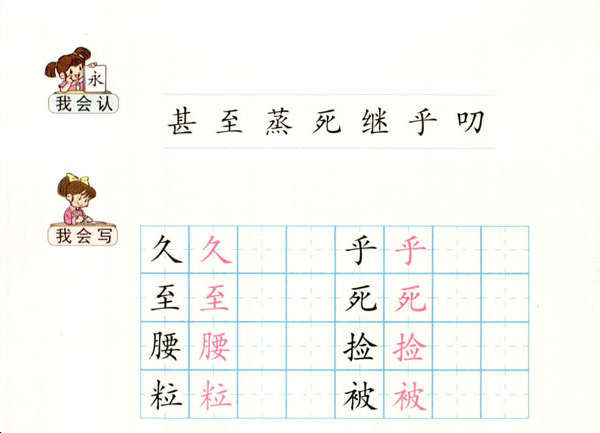 永
我会认
甚 至 蒸 死 继 乎 叨
我会写
久 久 乎 乎
至 至 死 死
腰 腰 捡 捡
粒 粒 被 被